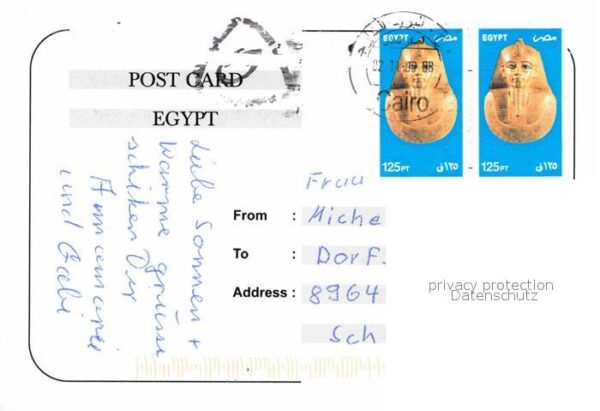 POST CARD
EGYPT
EGYPT مصر
125PT ١٢٥ ق
EGYPT مصر
125PT ١٢٥ ق
Cairo
Liebe Sonnen +
Warme grüsse
schiken Dir
Annamarie
und Gabi
Frau
From : Miche
To : Dorf.
Address : 8964
Sch
privacy protection
Datenschutz